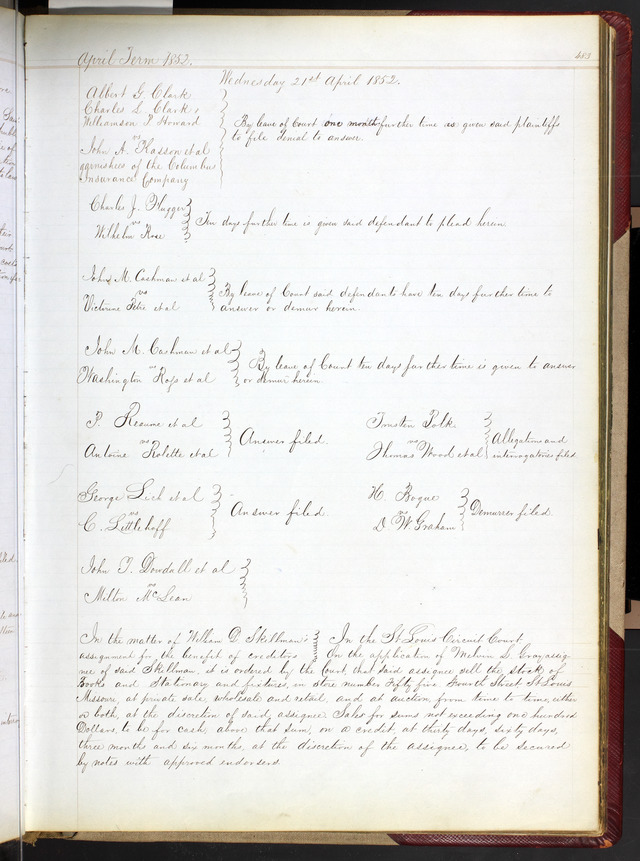 April Term 1852.
483
Wednesday 21st April 1852.
Albert G. Clark
Charles S. Clark &
Williamson P. Howard
vs
John A. Kasson et al
garnishees of the Columbus
Insurance Company
By leave of Court one month further time is given said plaintiffs
to file denial to answer.
Charles J.
vs
Wilhelm Rose
Ten days further time is given said defendant to plead herein
John M. Cashman et al
vs
Victorine et al
By leave of Court said defendants have ten days further time to
answer or demur herein.
John M. Cashman et al
vs
Washington et al
By leave of Court ten days further time is given to answer
or demur herein
P. et al
vs
Antoine Rolette et al
Answer filed.
Trusten Polk.
vs
Thomas Wood et al
Allegations and
interrogatories filed.
George et al
vs
C. Littlehoff
Answer filed.
H. Bogue
vs
D. W. Graham
Demurrer filed
John T. Dowdall et al
vs
Milton McLean
In the matter of William D. Skillman's
assignment for the benefit of creditors
In the St Louis Circuit Court,
On the application of Melvin L. Gray assig-
nee of said Skillman, it is ordered by the Court, that said assignee sell the stock of
Books and Stationary and fixtures, in store number Fifty five Fourth Street St Louis
Missouri, at private sale, wholesale and retail, and at auction, from time to time, either
or both, at the discretion of said assignee. Sales for sums not exceeding one hundred
Dollars to be for cash, above that sum, on a credit, at thirty days, sixty days,
three months and six months, at the discretion of the assignee, to be secured
by notes with approved endorsers